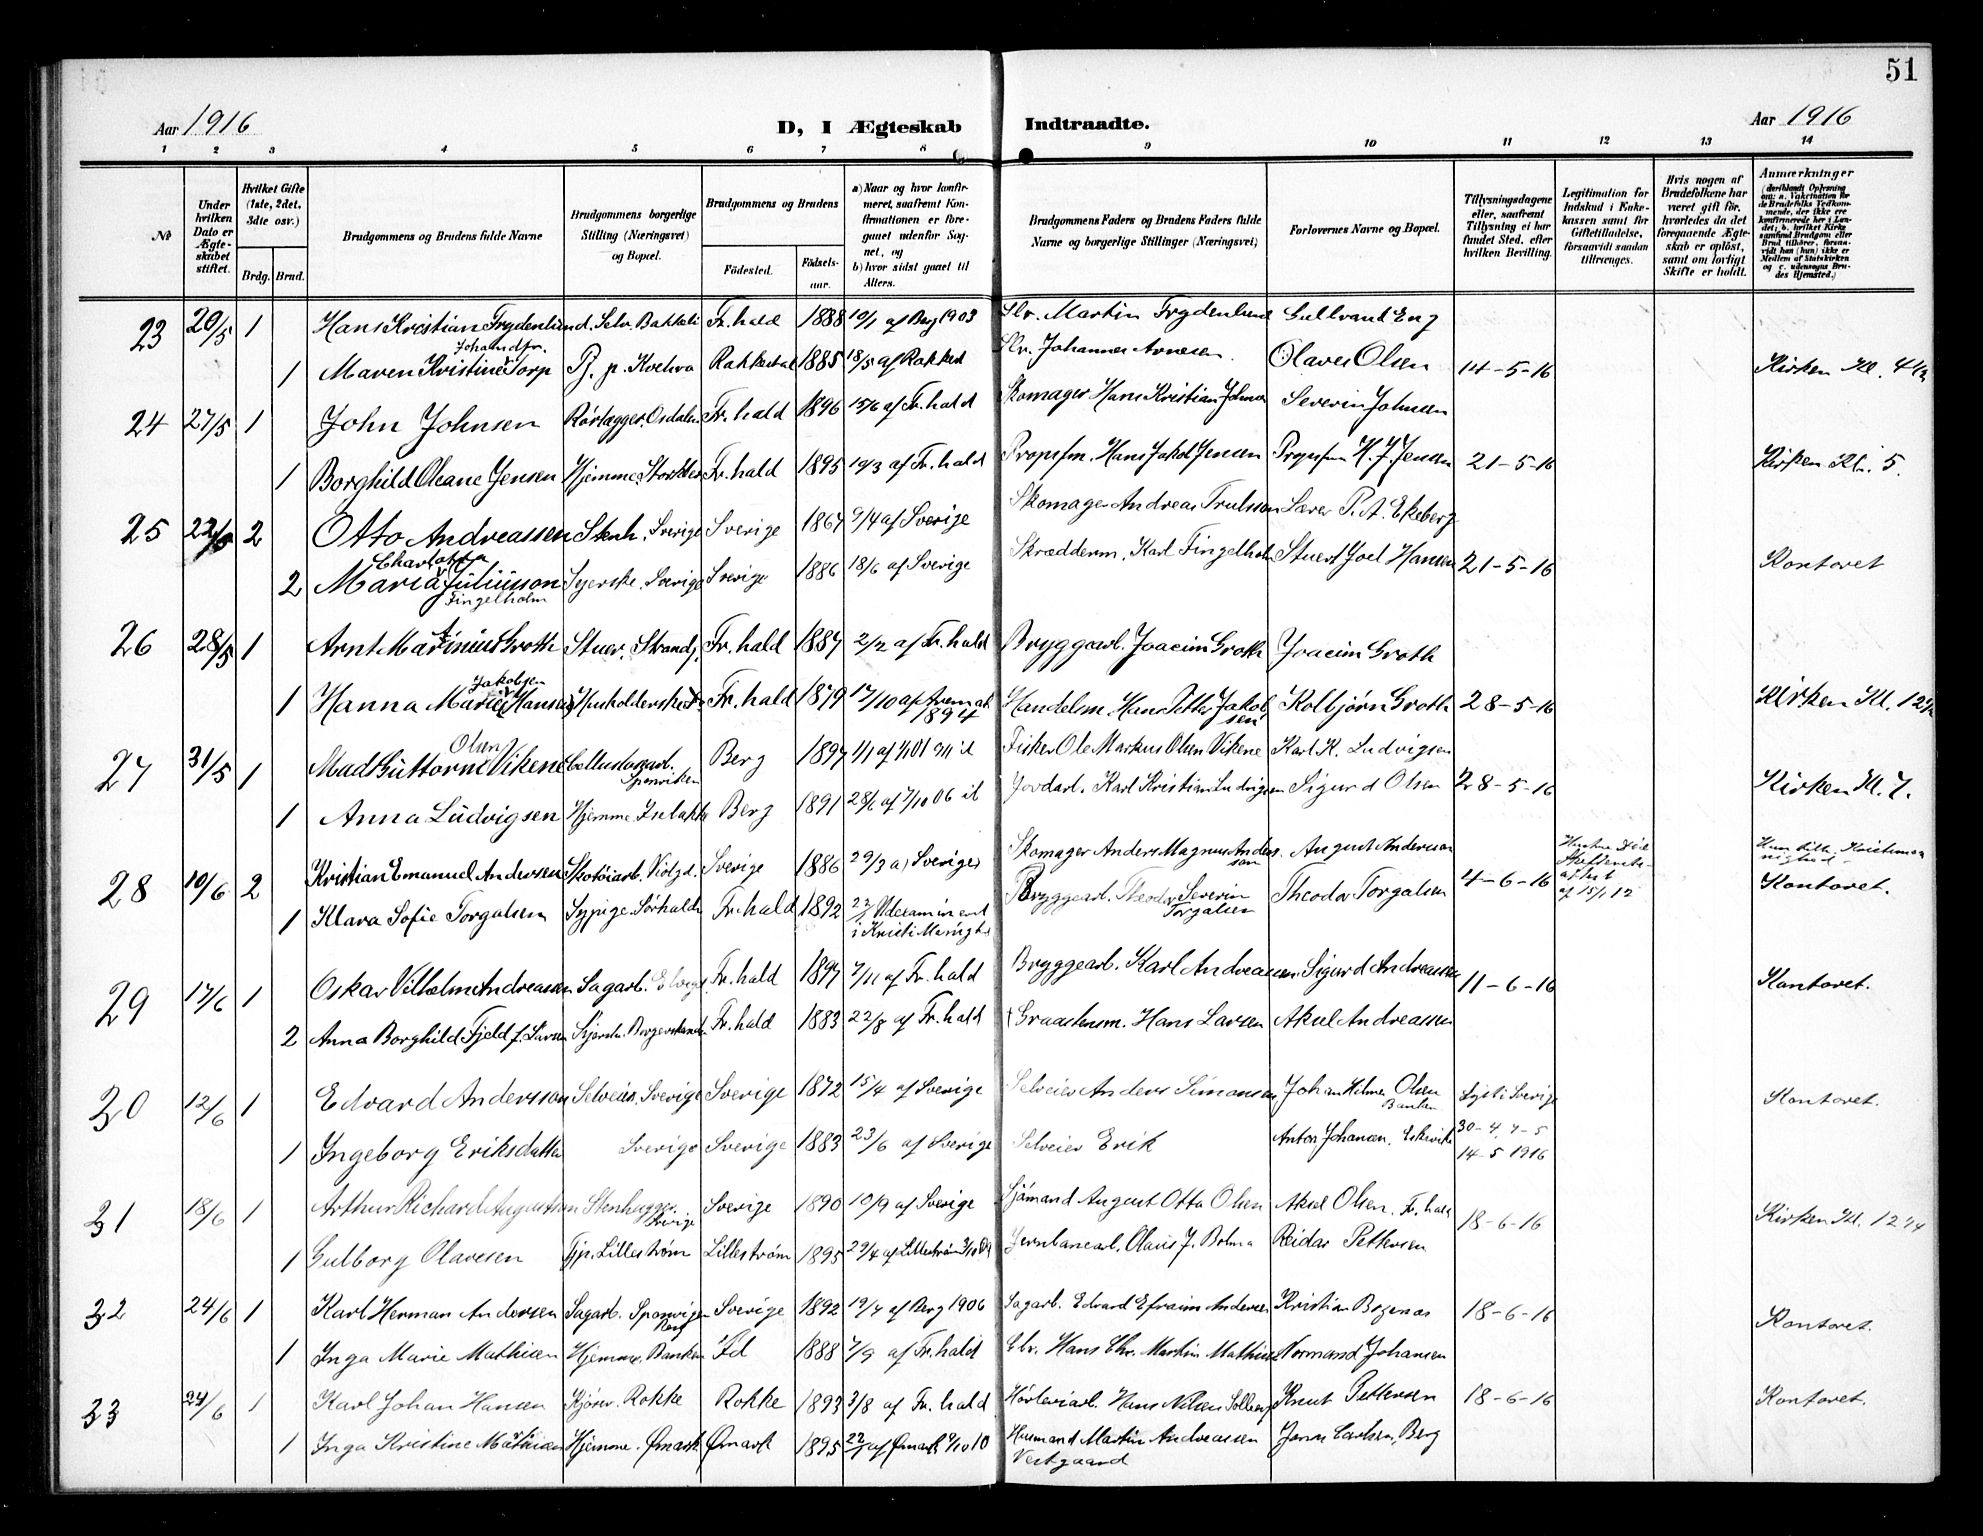 51
Aar 1916
D, I Ægteskab Indtraadte.
Aar 1916
1 2 3 4 5 6 7 8 9 10 11 12 13 14
№
Under hvilken Dato er Ægteskabet stiftet.
Hvilket Gifte (1ste, 2det, 3die osv.)
Brdg. Brud.
Brudgommens og Brudens fulde Navne
Brudgommens borgerlige Stilling (Næringsvei) og Bopæl.
Brudgommens og Brudens
Födested. Födselsaar.
a) Naar og hvor konfirmeret, saafremt Konfirmationen er foregaaet udenfor Sognet, og
b) hvor sidst gaaet til Alters.
Brudgommens Faders og Brudens Faders fulde Navne og borgerlige Stillinger (Næringsvei)
Forlovernes Navne og Bopæl.
Tillysningsdagene eller, saafremt Tillysning ei har fundet Sted, efter hvilken Bevilling.
Legitimation for Indskud i Enkekassen samt for Giftetilladelse, forsaavidt saadan tiltrænges.
Hvis nogen af Brudefolkene har været gift för, hvorledes da det foregaaende Ægteskab er oplöst, samt om lovligt Skifte er holdt.
Anmærkninger
23 20/5 1 Hans Kristian Frydenlund. Selv. Bakkeli Fr.hald 1888 10/1 af Berg 1903 Martin Frydenlund Gullvand Eng
Johandtr.
1 Maren Kristine Torp Pj. p. Rakkestad 1885 18/5 af Rakkest Johannes Olaves Olsen 14-5-16 Kirken Kl. 4
24 27/5 1 John Johnsen Rörlægger. Osdalen Fr.hald 1896 15/6 af Fr.hald Skomager Hans Kristian Johnsen Severin Johnsen
1 Borghild Oleane Jensen Hjemme. Fr.hald 1895 19/3 af Fr.hald Hans Jakob Jensen H. J. Jensen 21-5-16 Kirken Kl. 5.
25 2 Otto Andreassen Stenh. Sverige Sverige 1867 9/4 af Sverige Skomager Andreas Trulsson Lærer P. A. Ekeberg
Charlotta
2 Maria Juliusson Syerske. Sverige Sverige 1886 18/6 af Sverige Skræderm. Karl Fingelholm Stuert Joel Hansen 21-5-16 Kontoret
Fingelholm
26 28/5 1 Arnt Marinius Groth Stuer. Strandg. Fr.hald 1887 2/2 af Fr.hald Bryggearb. Joacim Groth Joacim Groth
Jakobsen
1 Hanna Marie Hansen Husholderske Fr.hald 1879 17/10 af Aremark 1894 Handelsm. Hans Petter Jakobsen Kolbjørn Groth 28-5-16 Kirken Kl. 12½
Olsen
27 31/5 1 Mads Guttorm Vikene Cellulosearb. Sponviken Berg 1897 1/1 af Fisker Ole Markus Olsen Vikene Karl K. Ludvigsen
1 Anna Ludvigsen Hjemme Isebakke Berg 1891 28/6 af 7/10 06 Jordarb. Karl Kristian Ludvigsen Sigurd Olsen 28-5-16 Kirken Kl. 7.
28 10/6 2 Kristian Emanuel Andersen Skotöiarb. Violgd. Sverige 1886 29/3 af Sverige Skomager Anders Magnus Anderson August Anderson
1 Klara Sofie Torgalsen Sypige. Sörhalde Fr.hald 1892 Bryggearb. Theodor Severin Torgalsen Theodor Torgalsen 4-6-16 af 15/1 12 Kontoret.
29 17/6 1 Oskar Vilhelm Andreassen Sagarb. Fr.hald 1897 7/11 af Fr.hald Bryggearb. Karl Andreassen Sigurd Andreassen 11-6-16 Kontoret.
2 Anna Borghild Fjeld f. Larsen Fr.hald 1883 22/8 af Fr.hald Graastensm. Hans Larsen Aksel Andreassen
30 12/6 1 Edvard Andersson Selveier. Sverige Sverige 1872 15/4 af Sverige Selveier Anders Simonsen Johan Hilmer Olsen Banken Lyst i Sverige Kontoret.
1 Ingeborg Eriksdatter Sverige Sverige 1883 23/6 af Sverige Selveier Erik Anton Johansen, 30-4, 7-5 14-5 1916
31 18/6 1 Arthur Richard Augustson Stenhugger. Sverige Sverige 1890 10/9 af Sverige Sjömand August Otto Olsen Aksel Olsen. Fr.hald 18-6-16 Kirken Kl. 12¼
1 Gulborg Olavesen Tjp. Lilleström Lilleström 1895 29/4 af Lilleström Jernbanearb. Olaus J. Bolma Reidar Pettersen
32 24/6 1 Karl Herman Andersen Sagarb. Sponvigen Berg Sverige 1892 19/4 af Berg 1906 Sagarb. Edvard Efraim Andersen Kristian 18-6-16 Kontoret.
1 Inga Marie Mathisen Hjemme. Banken Id 1888 7/9 af Fr.hald Hans Chr. Martin Mathisen Normand Johansen
33 24/6 1 Karl Johan Hansen Kjörer. Rokke Rokke 1893 3/8 af Fr.hald Hans Nilsen Solberg Knut Pettersen 18-6-16 Kontoret.
1 Inga Kristine Mathisen Hjemme. Ømark Ømark 1895 af Ømark 9/10 10 Husmand Martin Andreassen Vestgaard Jenn Carlsen, Berg